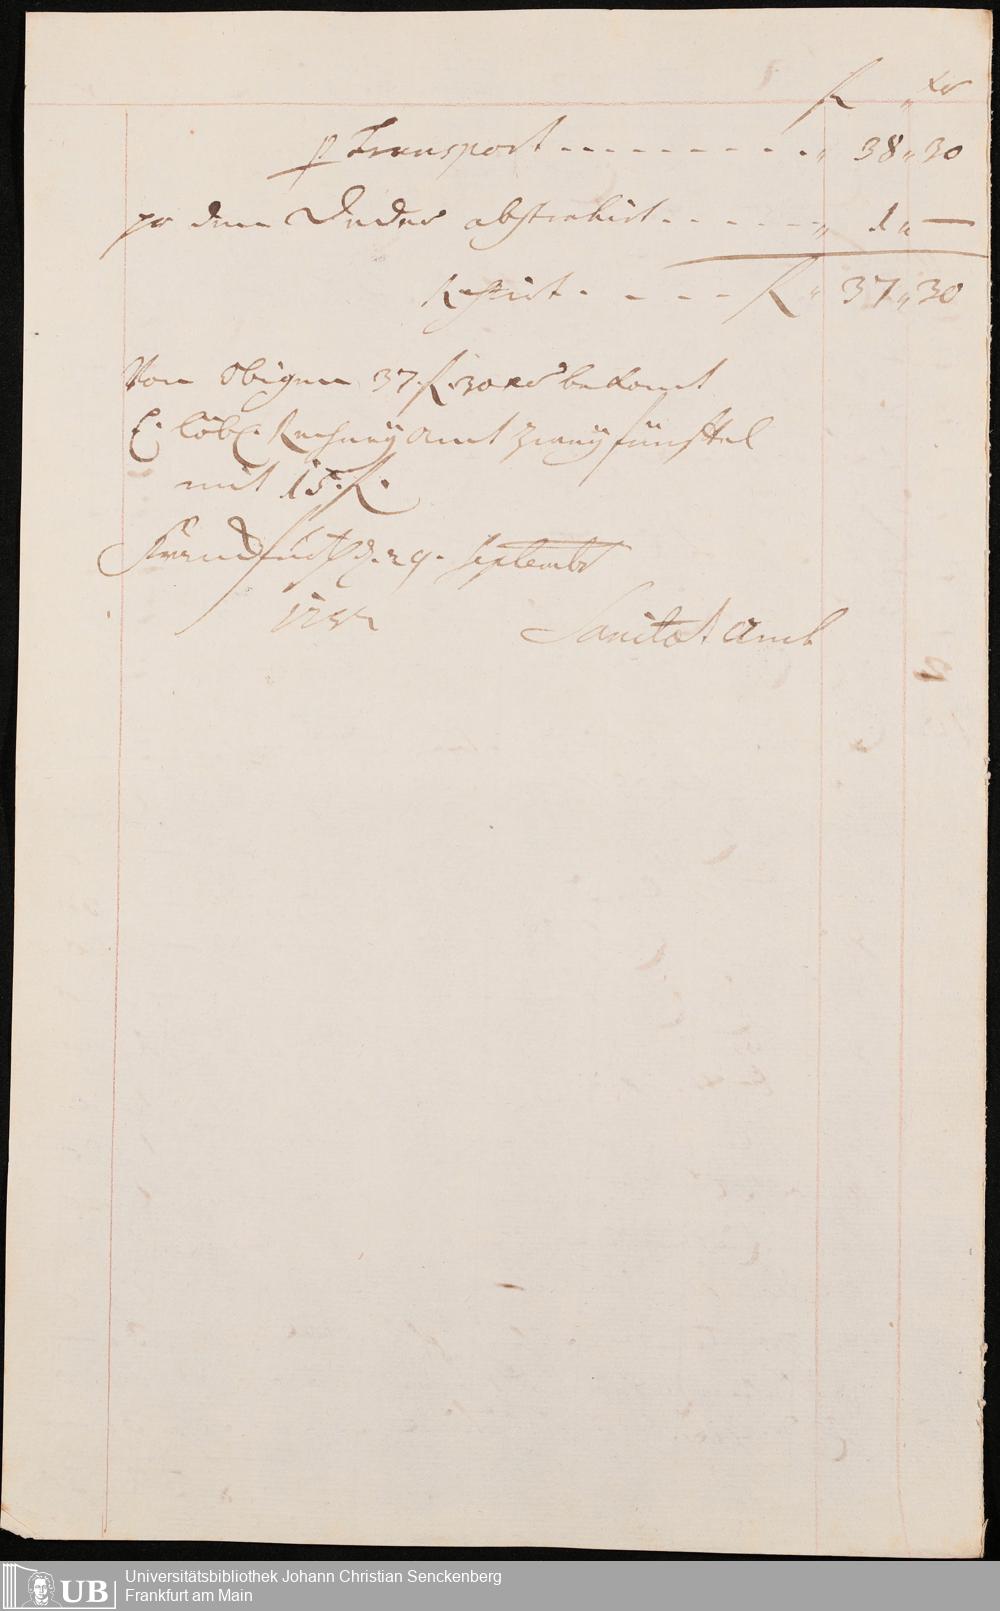 fl „ xr
p Transport - - - - - - - - - „ 38 „ 30
pr dem Pedel abstrahirt - - - - - „ 1 „ —
Restirt - - - - - fl „ 37 „ 30
Von obigen 37. fl. 30 xr bekomt
E. löbl. Rechney Amt zwey fünftel
mit 15. fl.
Franckfurth d. 29. Septembr
Sanitæt Amt
UB Universitätsbibliothek Johann Christian Senckenberg
Frankfurt am Main